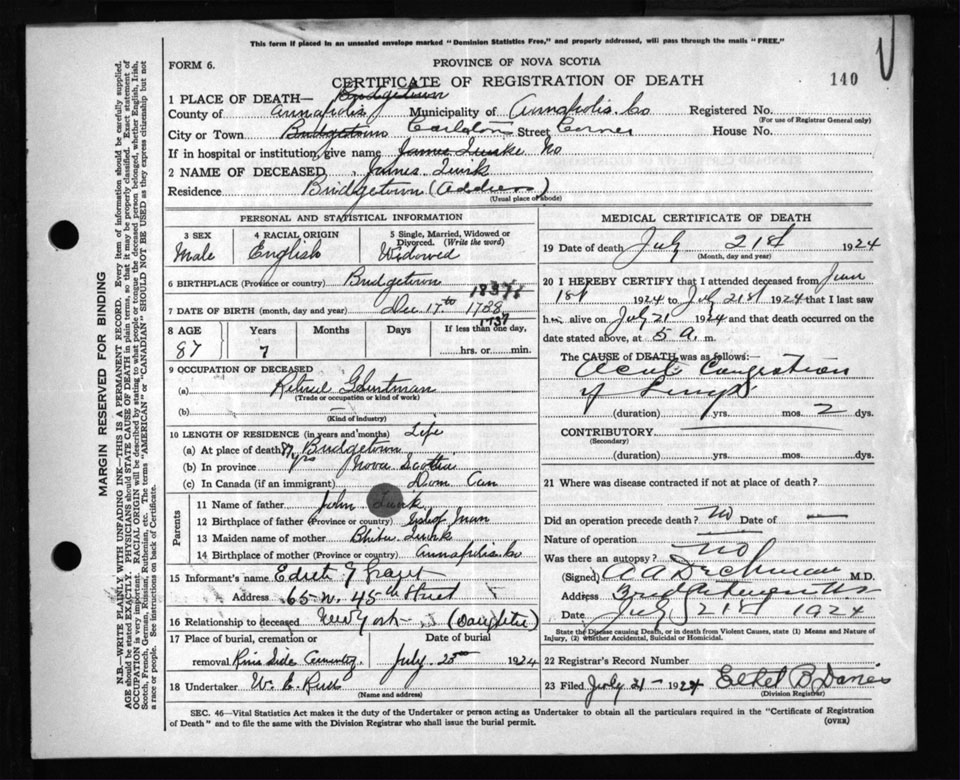 This form if placed in an unsealed envelope marked "Dominion Statistics Free," and properly addressed, will pass through the mails "FREE."
FORM 6.
PROVINCE OF NOVA SCOTIA
CERTIFICATE OF REGISTRATION OF DEATH
140
1 PLACE OF DEATH— Bridgetown
County of Annapolis Municipality of Annapolis Co Registered No.
(For use of Registrar General only)
City or Town Bridgetown Carleton Street Corner House No.
If in hospital or institution, give name James Turk No
2 NAME OF DECEASED James Turk
Residence Bridgetown (Address)
(Usual place of abode)
PERSONAL AND STATISTICAL INFORMATION
3 SEX
Male
4 RACIAL ORIGIN
English
5 Single, Married, Widowed or Divorced. (Write the word)
Widowed
6 BIRTHPLACE (Province or country) Bridgetown
7 DATE OF BIRTH (month, day and year) Dec 17th
8 AGE
87
Years
7
Months
Days
If less than one day,
hrs. or min.
9 OCCUPATION OF DECEASED
(a)
(Trade or occupation or kind of work)
(b) —
(Kind of industry)
10 LENGTH OF RESIDENCE (in years and months) Life
(a) At place of death 87 yrs Bridgetown
(b) In province Nova Scotia
(c) In Canada (if an immigrant) Dom. Can
Parents
11 Name of father John Turk
12 Birthplace of father (Province or country)
13 Maiden name of mother Turk
14 Birthplace of mother (Province or country) Annapolis Co
15 Informant's name
Address 65 W. 45th Street
16 Relationship to deceased New York (Daughter)
17 Place of burial, cremation or removal River Side Cemetery
Date of burial
July 23 1924
18 Undertaker W. E.
(Name and address)
MEDICAL CERTIFICATE OF DEATH
19 Date of death July 21st 1924
(Month, day and year)
20 I HEREBY CERTIFY that I attended deceased from June
1st 1924 to July 21st 1924 that I last saw
him alive on July 21 1924 and that death occurred on the
date stated above, at 5 a. m.
The CAUSE of DEATH was as follows:
Acute Congestion
of Lungs
(duration) yrs. mos. 2 dys.
CONTRIBUTORY
(Secondary)
(duration) yrs. mos. dys.
21 Where was disease contracted if not at place of death?
Did an operation precede death? No Date of —
Nature of operation
Was there an autopsy? No
(Signed) M.D.
Address Bridgetown NS
Date July 21st 1924
State the Disease causing Death, or in death from Violent Causes, state (1) Means and Nature of Injury, (2) whether Accidental, Suicidal or Homicidal.
22 Registrar's Record Number
23 Filed July 21— 1924 Ethel B Davies
(Division Registrar)
SEC. 46—Vital Statistics Act makes it the duty of the Undertaker or person acting as Undertaker to obtain all the particulars required in the "Certificate of Registration
of Death" and to file the same with the Division Registrar who shall issue the burial permit.
(OVER)
MARGIN RESERVED FOR BINDING
N.B.—WRITE PLAINLY WITH UNFADING INK—THIS IS A PERMANENT RECORD. Every item of information should be carefully supplied.
AGE should be stated EXACTLY. PHYSICIANS should STATE CAUSE OF DEATH in plain terms, so that it may be properly classified. Exact statement of
OCCUPATION is very important. RACIAL ORIGIN will be described by stating to what people or tongue the deceased person belonged, whether English, Irish,
Scotch, French, German, Russian, Ruthenian, etc. The terms "AMERICAN" or "CANADIAN" SHOULD NOT BE USED as they express citizenship but not
a race or people. See instructions on back of Certificate.